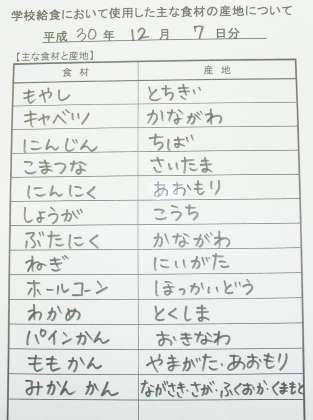 学校給食において使用した主な食材の産地について
平成 30 年 12 月 7 日分
【主な食材と産地】
食材 産地
もやし とちぎ
キャベツ かながわ
にんじん ちば
こまつな さいたま
にんにく あおもり
しょうが こうち
ぶたにく かながわ
ねぎ にいがた
ホールコーン ほっかいどう
わかめ とくしま
パインかん おきなわ
ももかん やまがた・あおもり
みかんかん ながさき・さが・ふくおか・くまもと